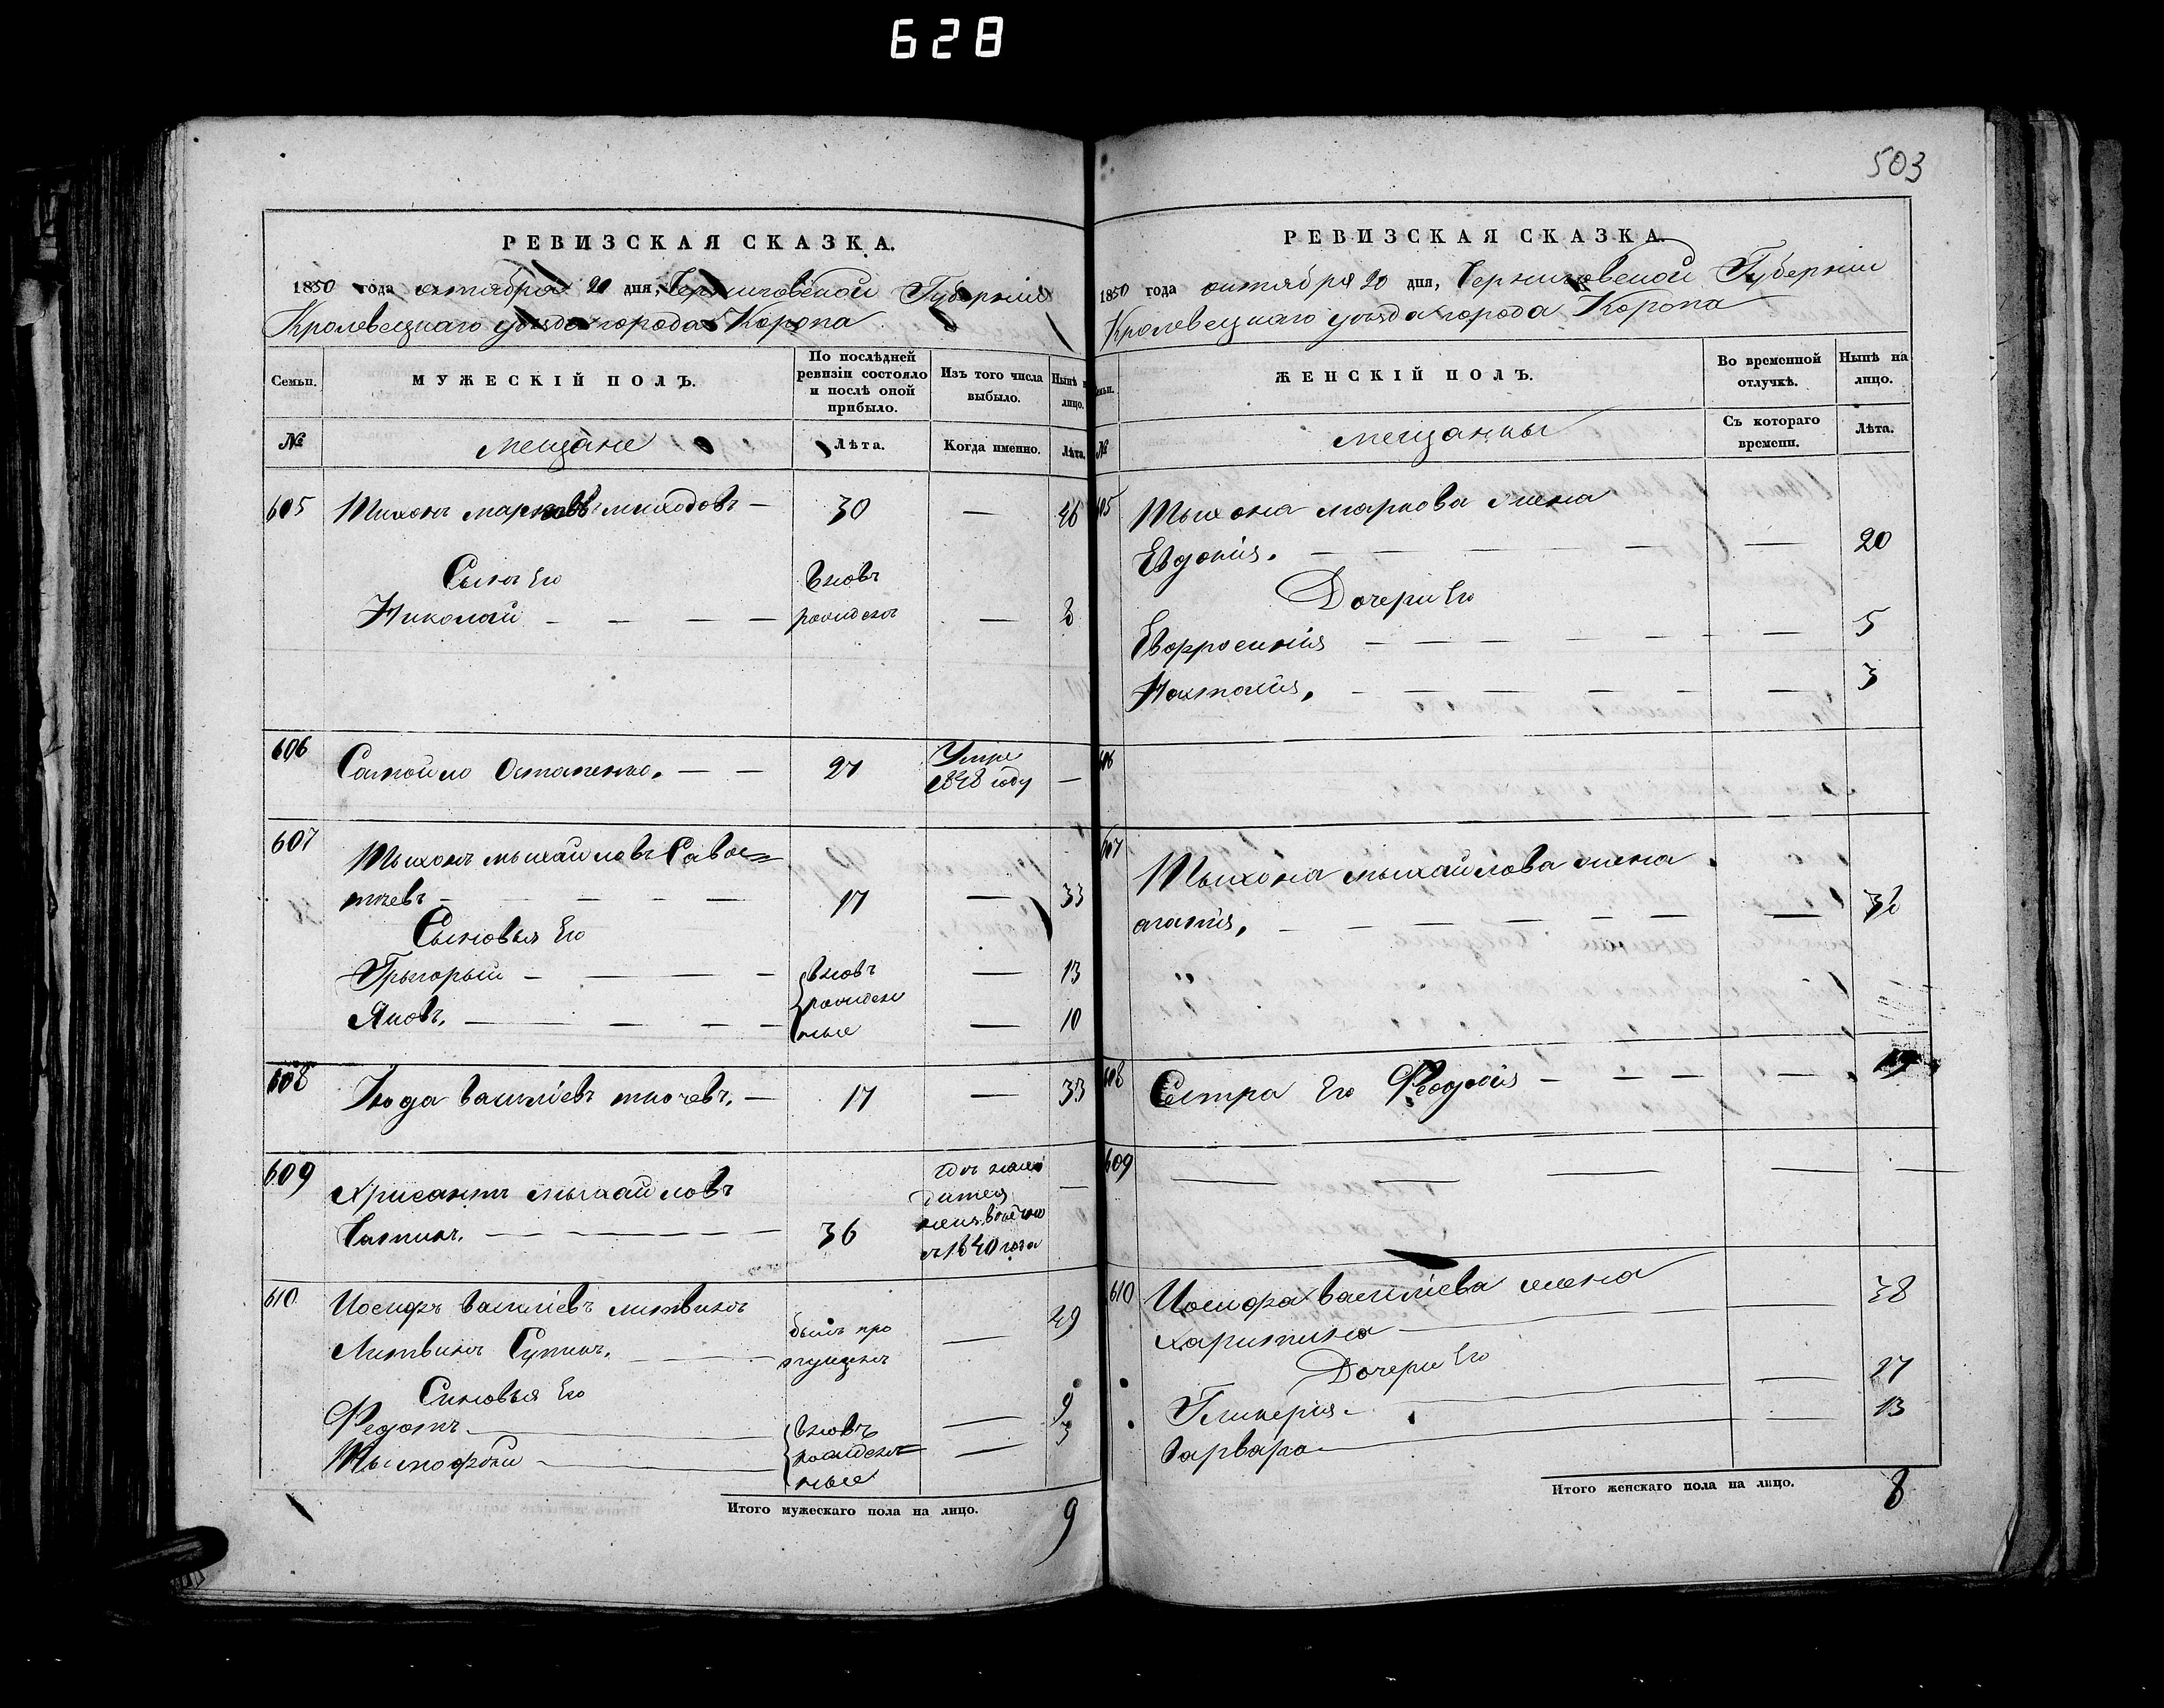 628
503
РЕВИЗСКАЯ СКАЗКА.
1850 года октября 20 дня, Черниговской Губерніи
Кролевецкаго уѣзда города Коропа
Семьи.
МУЖЕСКІЙ ПОЛЪ.
По послѣдней ревизіи состояло и послѣ оной прибыло.
Изъ того числа выбыло.
Нынѣ лицо.
№
мещане
Лѣта.
Когда именно.
Лѣта.
605 Тихонъ марковъ — 30 — 46
Сынъ Его вновь
Николай — — — — рожденъ — 2
606 Самойло Остапенко. — — 27 Умре 1848 году —
607 Тыхонъ мыхайловъ Савос=
тѣевъ — — — — — 17 — 33
Сыновья Его
Грыгорый — — — вновь — 13
Яковъ. — — — — — рожден ные — 10
608 Июда василіевъ ткачевъ. — 17 — 33
609 Хрисанфъ мыхайловъ
Чапкинъ. — — — — — 36 —
с 1840 года
610 Иосифъ василіевъ литвинъ 49
Литвинъ — был про пущенъ —
Сыновья Его
Федотъ — вновь — 9
Тымофѣй — рожден= ные — 3
Итого мужескаго пола на лицо. 9
РЕВИЗСКАЯ СКАЗКА.
1850 года октября 20 дня, Черниговской Губерніи
Кролевецкаго уѣзда города Коропа
ЖЕНСКІЙ ПОЛЪ.
Во временной отлучкѣ.
Нынѣ на лицо.
№
мещанкы
Съ котораго времени.
Лѣта.
605 Тыхона маркова жена
Евдокія. — — — — — — 20
Дочери Его
Евфросинія — — — — — — 5
Настасія, — — — — — — 3
606
607 Тыхона мыхайлова жена
агапія, — — — — — — 32
608 Сестра Его Феодосія — — — —
609 — — — — —
610 Иосифа василіева жена 38
харитина — —
Дочери Его
Гликерія — — 17
Варвара — — 13
Итого женскаго пола на лицо. 8